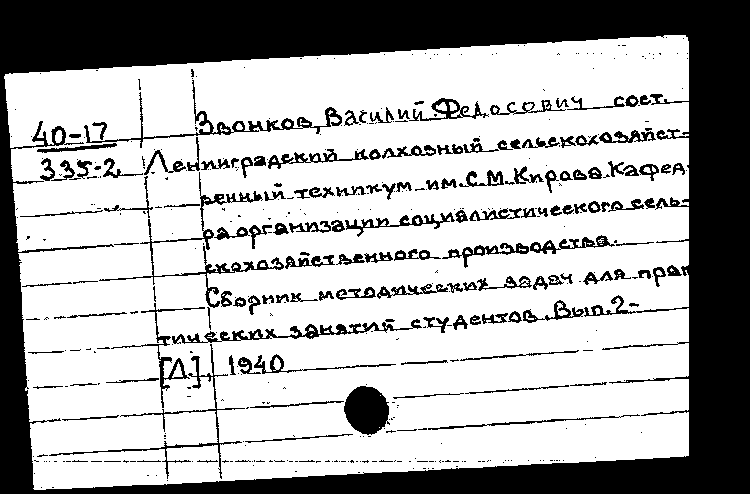 40-17
335-2
Звонков, Василий Федосович сост.
Ленинградский колхозный сельскохозяйст-
венный техникум им. С.М. Кирова. Кафед-
ра организации социалистического сель-
скохозяйственного производства.
Сборник методических задач для прак
тических занятий студентов. Вып. 2-
[Л.], 1940